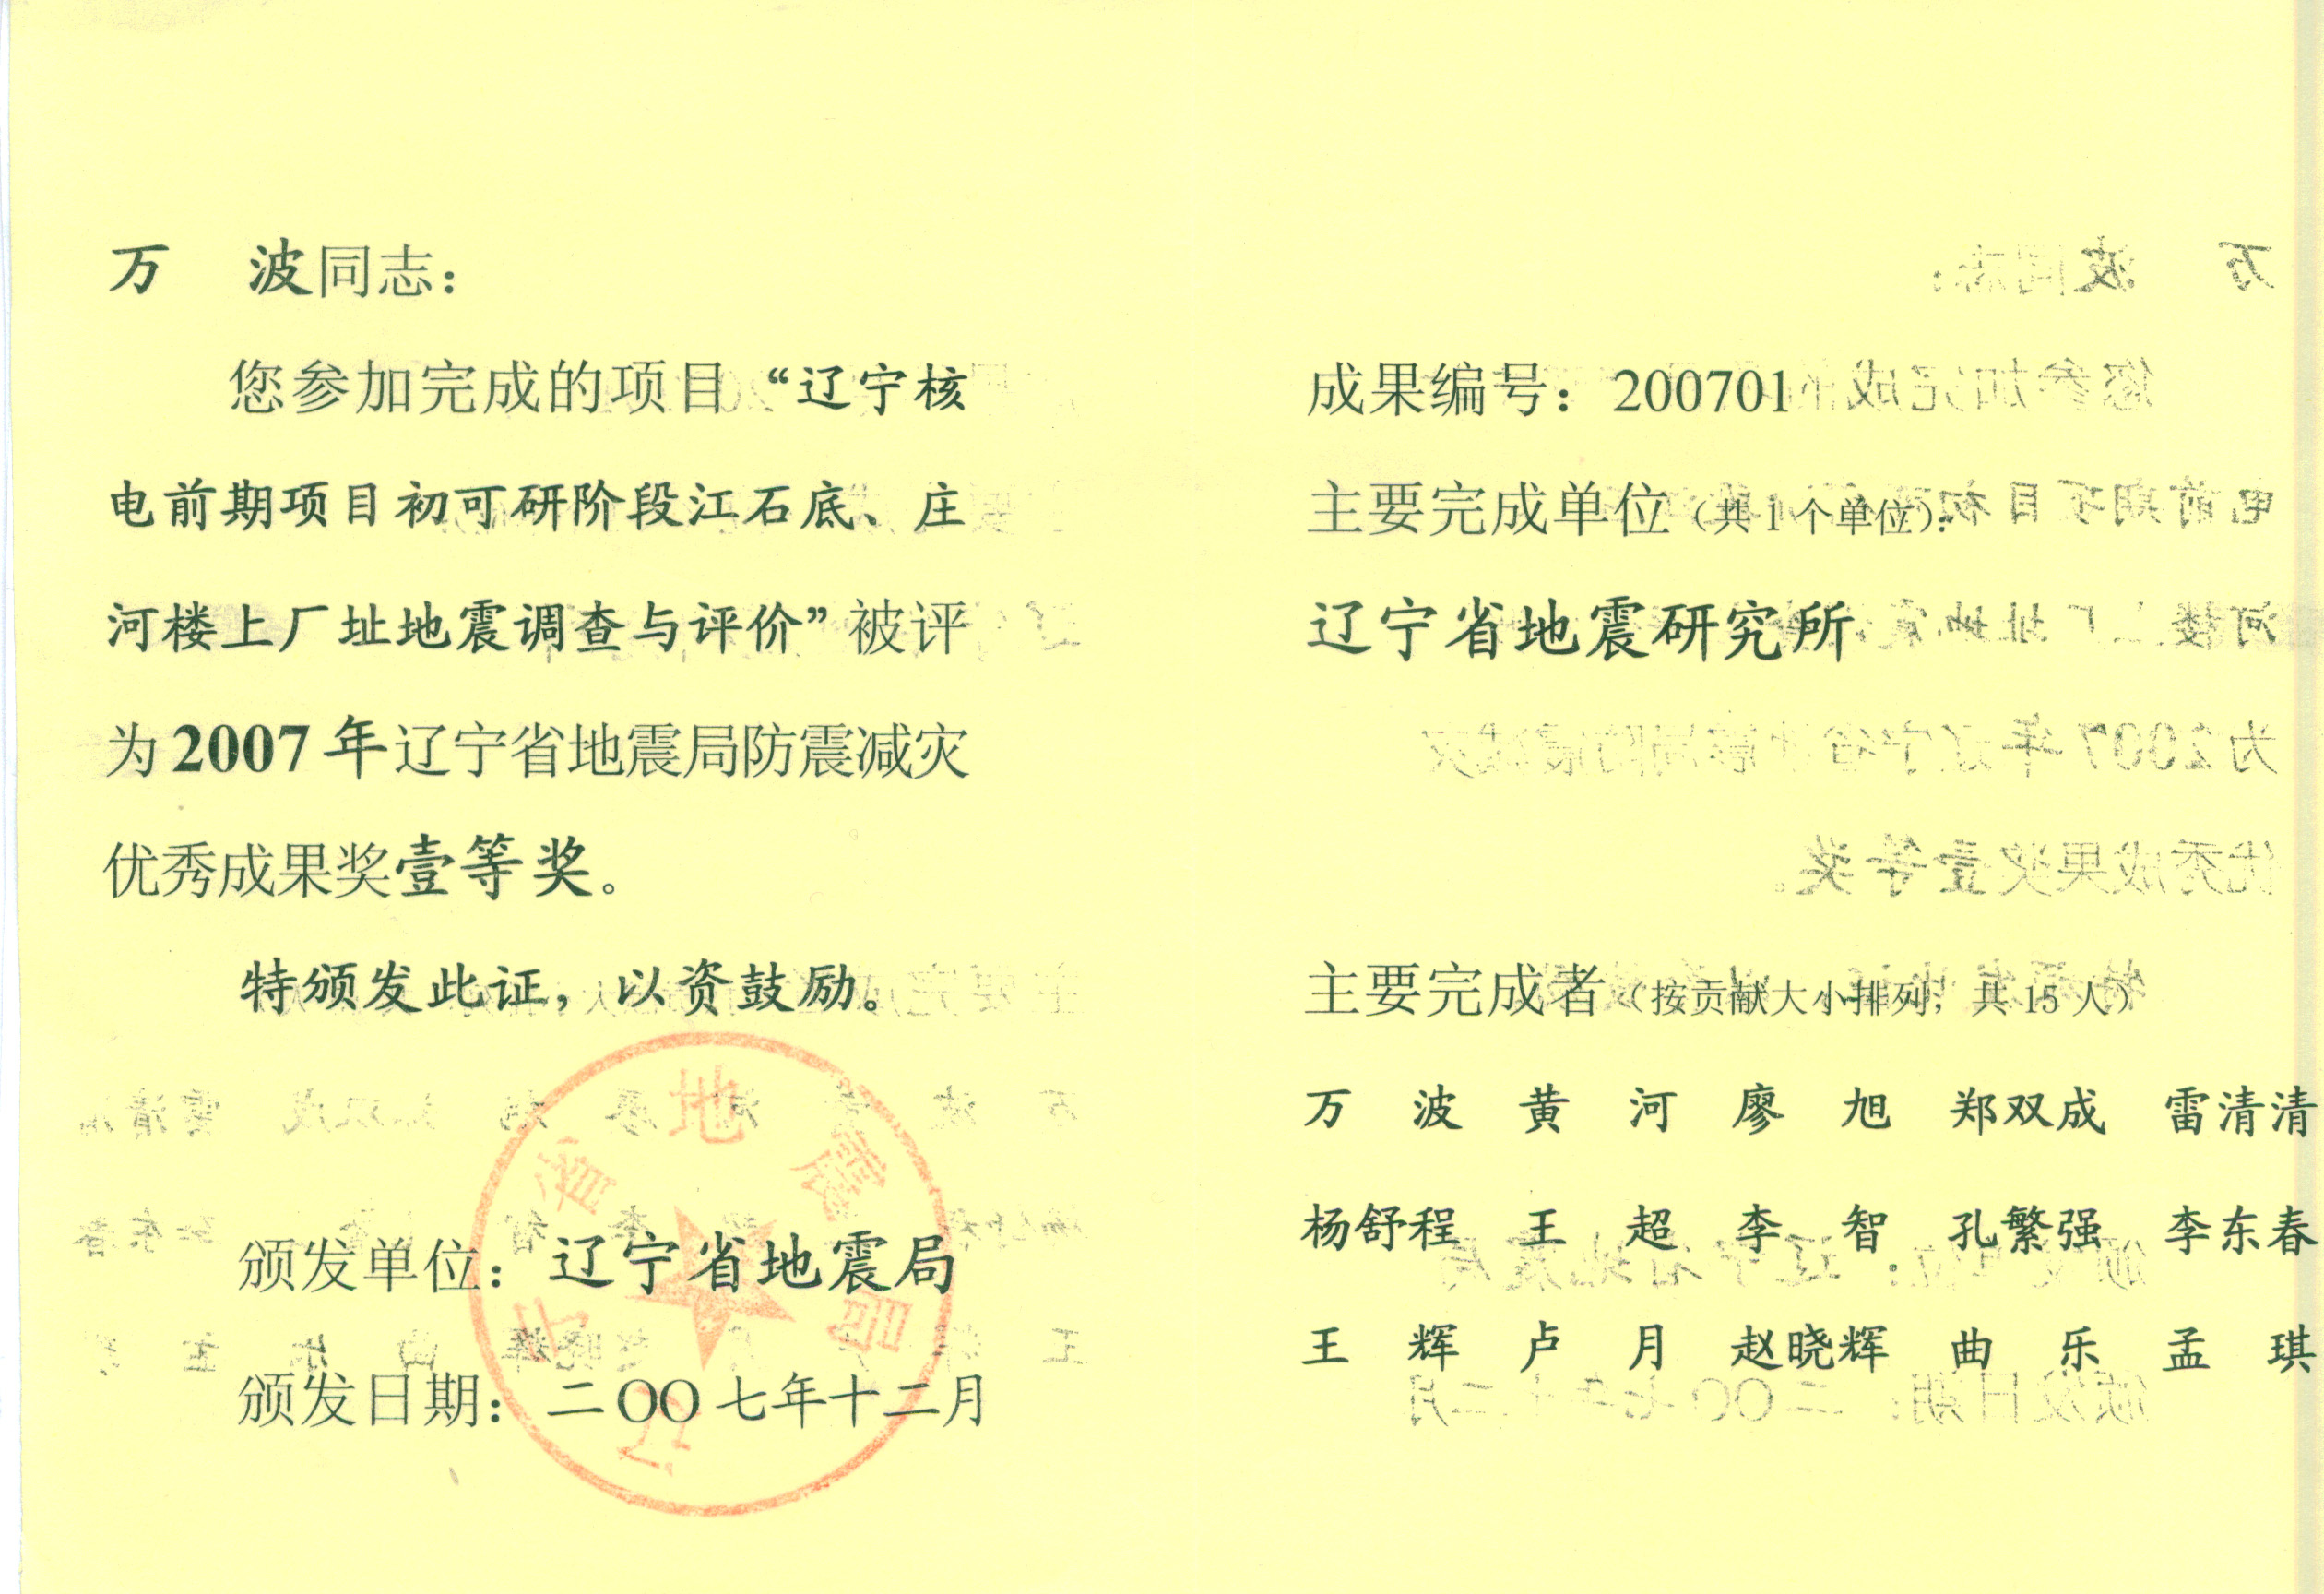 万 波同志：
您参加完成的项目“辽宁核
电前期项目初可研阶段江石底、庄
河楼上厂址地震调查与评价”被评
为2007年辽宁省地震局防震减灾
优秀成果奖壹等奖。
特颁发此证，以资鼓励。
颁发单位：辽宁省地震局
颁发日期：二〇〇七年十二月
辽宁省地震局
成果编号：200701
主要完成单位（共1个单位）：
辽宁省地震研究所
主要完成者（按贡献大小排列，共15人）
万 波 黄 河 廖 旭 郑双成 雷清清
杨舒程 王 超 李 智 孔繁强 李东春
王 辉 卢 月 赵晓辉 曲 乐 孟 琪